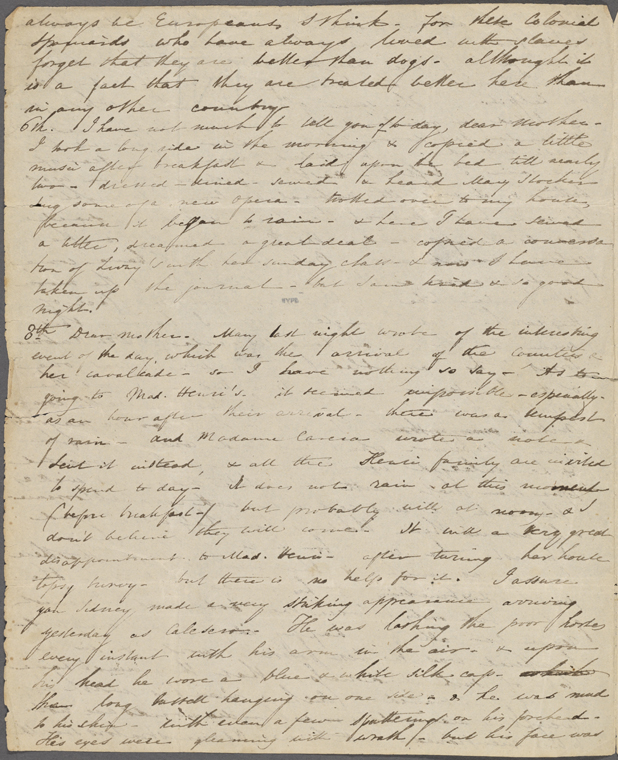 always be Europeans I think - For these Colonial
Spaniards who have always lived with slaves
forget that they are better than dogs - although it
is a fact that they are treated better here than
in any other country
6th. I have not much to tell you of to day, dear Mother -
I took a long ride in the morning & copied a little
music after breakfast & laid upon the bed till nearly
two - dressed - dined - sewed & heard Mary
sing some of a new opera - trotted over to my house,
because it began to rain - & here I have sewed
a little, dreamed a great deal - copied a conversa
tion of with her Sunday class - & now I have
taken up the journal - but I am tired & so good
night.
8th Dear Mother - Mary last night wrote of the interesting
event of the day, which was the arrival of the Countess &
her cavalcade - so I have nothing to say - As to
going to Mad. Henri's - it seemed impossible - especially -
as an hour after their arrival - there was a tempest
of rain - and Madame wrote a note &
sent it instead, & all the Henri family are invited
to spend to day - It does not rain at this moment
(before breakfast -) but probably will at noon - & I
don't believe they will come - It will a very great
disappointment to Mad. Henri - after turing her house
topsy turvy - but there is no help for it. I assure
you Sidney made a very striking appearance arriving
yesterday as calesero - He was lashing the poor horses
every instant with his arm in the air - & upon
his head he wore a blue & white silk cap -
long tassell hanging on one side - & he was mud
to his chin - with even a few spatterings on his forehead -
His eyes were gleaming with wrath - but his face was